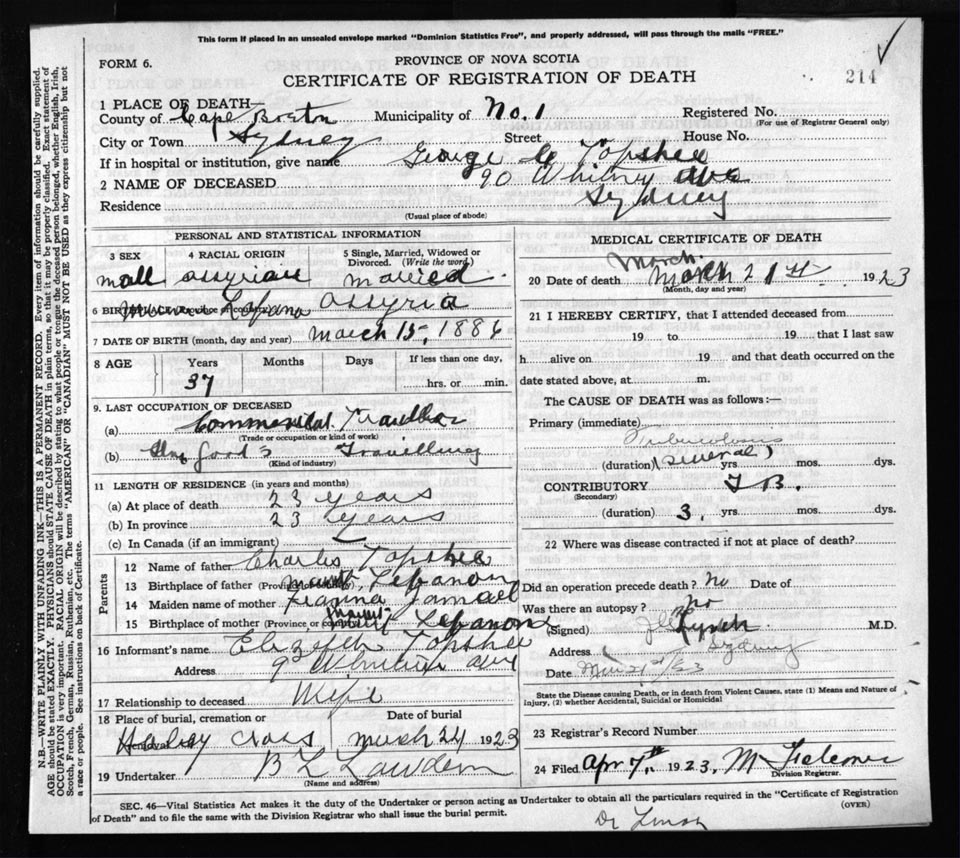 This form if placed in an unsealed envelope marked "Dominion Statistics Free", and properly addressed, will pass through the mails "FREE."
FORM 6.
PROVINCE OF NOVA SCOTIA
CERTIFICATE OF REGISTRATION OF DEATH
214
1 PLACE OF DEATH—
County of Cape Breton Municipality of No. 1 Registered No.
(For use of Registrar General only)
City or Town Sydney Street House No.
If in hospital or institution, give name George Topshee
2 NAME OF DECEASED 90 Whitney Ave
Residence Sydney
(Usual place of abode)
PERSONAL AND STATISTICAL INFORMATION
3 SEX 4 RACIAL ORIGIN 5 Single, Married, Widowed or Divorced. (Write the word)
mall assyrian married
6 BIRTHPLACE Assyria
7 DATE OF BIRTH (month, day and year) March 15, 1886
8 AGE Years Months Days If less than one day,
37 hrs. or min.
9. LAST OCCUPATION OF DECEASED
(a) Commercial Traveller
(Trade or occupation or kind of work)
(b) Good's Travelling
(Kind of industry)
11 LENGTH OF RESIDENCE (in years and months)
(a) At place of death 23 years
(b) In province 23 years
(c) In Canada (if an immigrant)
Parents
12 Name of father Charles Topshee
13 Birthplace of father Lebanon
14 Maiden name of mother
15 Birthplace of mother (Province or country) Lebanon
16 Informant's name Elizabeth Topshee
Address 9 Whitney Ave
17 Relationship to deceased Wife
18 Place of burial, cremation or removal Date of burial
Holey Cross March 24 1923
19 Undertaker
(Name and address)
MEDICAL CERTIFICATE OF DEATH
March
20 Date of death March 21st 1923
(Month, day and year)
21 I HEREBY CERTIFY, that I attended deceased from
19 to 19 that I last saw
h alive on 19 and that death occurred on the
date stated above, at m.
The CAUSE OF DEATH was as follows:—
Primary (immediate)
Tuberculosis
(duration) (General) yrs. mos. dys.
CONTRIBUTORY T B.
(Secondary)
(duration) 3, yrs. mos. dys.
22 Where was disease contracted if not at place of death?
Did an operation precede death? No Date of
Was there an autopsy? No
(Signed) Lynch M.D.
Address Sydney
Date Mar 21st/23
State the Disease causing Death, or in death from Violent Causes, state (1) Means and Nature of Injury, (2) whether Accidental, Suicidal or Homicidal
23 Registrar's Record Number
24 Filed Apr 7th, 1923, M
Division Registrar.
SEC. 46—Vital Statistics Act makes it the duty of the Undertaker or person acting as Undertaker to obtain all the particulars required in the "Certificate of Registration of Death" and to file the same with the Division Registrar who shall issue the burial permit.
(OVER)
N.B.—WRITE PLAINLY WITH UNFADING INK—THIS IS A PERMANENT RECORD. Every item of information should be carefully supplied.
AGE should be stated EXACTLY. PHYSICIANS should STATE CAUSE OF DEATH in plain terms, so that it may be properly classified. Exact statement of
OCCUPATION is very important. RACIAL ORIGIN will be described by stating to what people or tongue the deceased person belonged, whether English, Irish,
Scotch, French, German, Russian, Ruthenian, etc. The terms "AMERICAN" or "CANADIAN" MUST NOT BE USED as they express citizenship but not
a race or people. See instructions on back of Certificate.